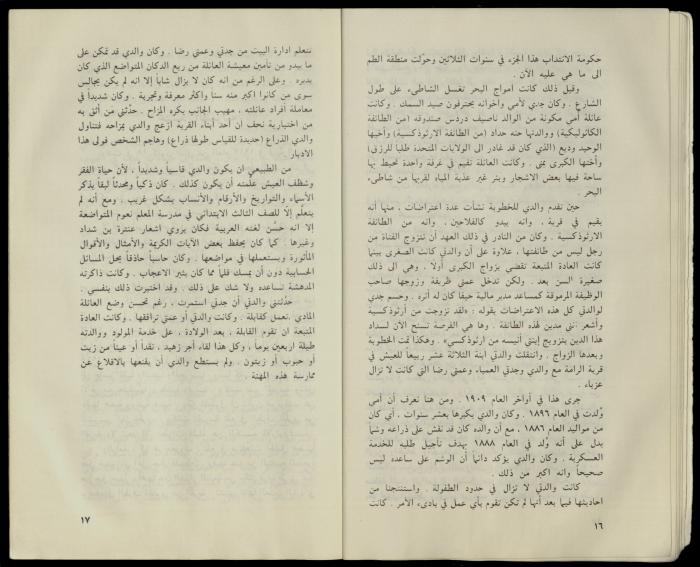 حكومة الانتداب هذا الجزء في سنوات الثلاثين وحوّلت منطقة الطم
الى ما هي عليه الآن .
وقبل ذلك كانت امواج البحر تغسل الشاطىء على طول
الشارع . وكان جدي لأمي واخوانه يحترفون صيد السمك . وكانت
عائلة أمي مكونة من الوالد ناصيف دردس صندوقه (من الطائفة
الكاثوليكية) ووالدتها حنه حداد (من الطائفة الارثوذكسية) وأخيها
الوحيد وديع (الذي كان قد غادر الى الولايات المتحدة طلبا للرزق)
وأختها الكبرى يمنى . وكانت العائلة تقيم في غرفة واحدة تحيط بها
ساحة فيها بعض الاشجار وبئر غير عذبة المياه لقربها من شاطىء
البحر .
حين تقدم والدي للخطوبة نشأت عدة اعتراضات ، منها أنه
يقيم في قرية ، وانه يبدو كالفلاحين ، وانه من الطائفة
الارثوذكسية . وكان من النادر في ذلك العهد أن تتزوج الفتاة من
رجل ليس من طائفتها ، علاوة على أن والدتي كانت الصغرى بينما
كانت العادة المتبعة تقضي بزواج الكبرى أولا . وهي الى ذلك
صغيرة السن بعد . ولكن تدخل عمتي ظريفة وزوجها صاحب
الوظيفة المرموقة كمساعد مدير مالية حيفا كان له أثره . وحسم جدي
لوالدتي كل هذه الاعتراضات بقوله : «لقد تزوجت من أرثوذكسية
وأشعر أنني مدين لهذه الطائفة . وها هي الفرصة تسنح الآن لسداد
هذا الدين بتزويج إبنتي أنيسه من ارثوذكسي» . وهكذا تمت الخطوبة
وبعدها الزواج . وانتقلت والدتي ابنة الثلاثة عشر ربيعا للعيش في
قرية الرامة مع والدي وجدتي العمياء وعمتي رضا التي كانت لا تزال
عزباء .
جرى هذا في أواخر العام ١٩٠٩ . ومن هنا نعرف أن أمي
وُلدت في العام ١٨٩٦ . وكان والدي يكبرها بعشر سنوات ، أي كان
من مواليد العام ١٨٨٦ ، مع أن والده كان قد نقش على ذراعه وشما
يدل على أنه وُلد في العام ١٨٨٨ بهدف تأجيل طلبه للخدمة
العسكرية . وكان والدي يؤكد دائما أن الوشم على ساعده ليس
صحيحا وانه اكبر من ذلك .
كانت والدتي لا تزال في حدود الطفولة . واستنتجنا من
احاديثها فيما بعد أنها لم تكن تقوم بأي عمل في بادىء الأمر . كانت
١٦
تتعلم ادارة البيت من جدتي وعمتي رضا . وكان والدي قد تمكن على
ما يبدو من تأمين معيشة العائلة من ريع الدكان المتواضع الذي كان
يديره . وعلى الرغم من انه كان لا يزال شاباً إلا انه لم يكن يجالس
سوى من كانوا اكبر منه سنا واكثر معرفة وتجربة . وكان شديداً في
معاملة أفراد عائلته ، مهيب الجانب يكره المزاح . حدّثني من أثق به
من اختيارية نحف ان أحد أبناء القرية ازعج والدي بمزاحه فتناول
والدي الذراع (حديدة للقياس طولها ذراع) وهاجم الشخص فولى هذا
الادبار
من الطبيعي ان يكون والدي قاسياً وشديداً ، لأن حياة الفقر
وشظف العيش علّمته أن يكون كذلك . كان ذكياً ومحدثاً لبقا يذكر
الأسماء والتواريخ والأرقام والأنساب بشكل غريب . ومع أنه لم
يتعلّم إلا للصف الثالث الابتدائي في مدرسة المعلم نعوم المتواضعة
إلا انه حسَّن لغته العربية فكان يروي اشعار عنترة بن شداد
وغيرها . كما كان يحفظ بعض الآيات الكريمة والأمثال والأقوال
المأثورة ويستعملها في مواضعها . وكان حاسباً حاذقاً يحل المسائل
الحسابية دون أن يمسك قلما مما كان يثير الاعجاب . وكانت ذاكرته
المدهشة تساعده ولا شك على ذلك . وقد اختبرت ذلك بنفسي .
حدّثتني والدتي أن جدتي استمرت ، رغم تحسن وضع العائلة
المادي ، تعمل كقابلة . وكانت والدتي أو عمتي ترافقها . وكانت العادة
المتبعة ان تقوم القابلة ، بعد الولادة ، على خدمة المولود ووالدته
طيلة اربعين يوماً ، وكل هذا لقاء أجر زهيد ، نقداً أو عيناً من زيت
أو حبوب أو زيتون . ولم يستطع والدي أن يقنعها بالاقلاع عن
ممارسة هذه المهنة .
١٧